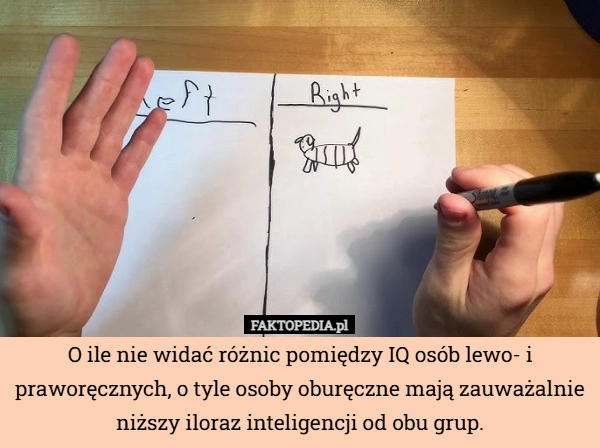 Left
Right
FAKTOPEDIA.pl
O ile nie widać różnic pomiędzy IQ osób lewo- i
praworęcznych, o tyle osoby oburęczne mają zauważalnie
niższy iloraz inteligencji od obu grup.